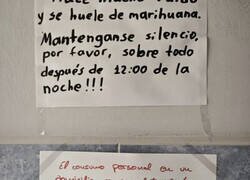 y se huele de marihuana.
Mantenganse silencio,
por favor, sobre todo
después de 12:00 de la
noche!!!
El consumo personal en un